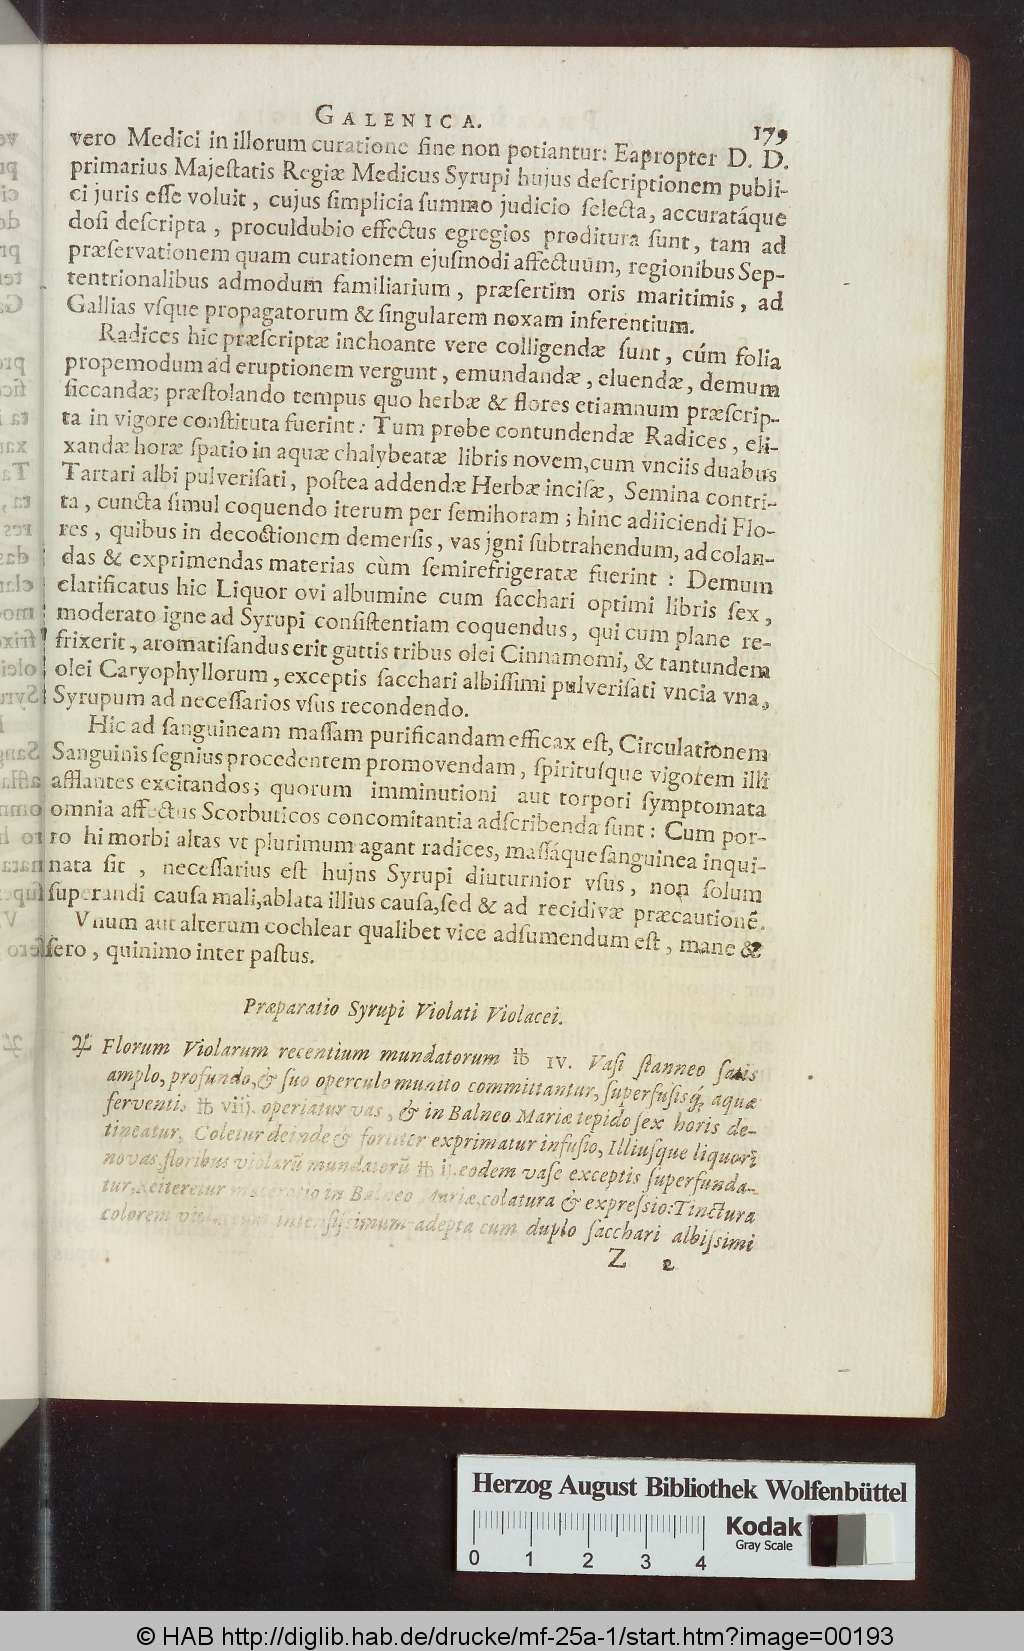 GALENICA. 179
vero Medici in illorum curatione ſine non potiantur: Eapropter D. D.
primarius Majeſtatis Regiæ Medicus Syrupi hujus deſcriptionem publi-
ci juris eſſe voluit, cujus ſimplicia ſummo judicio ſelecta, accuratáque
doſi deſcripta, proculdubio effectus egregios proditura ſunt, tam ad
præſervationem quam curationem ejuſmodi affectuum, regionibus Sep-
tentrionalibus admodum familiarium, præſertim oris maritimis, ad
Gallias vſque propagatorum & ſingularem noxam inferentium.
Radices hic præſcriptæ inchoante vere colligendæ ſunt, cúm folia
propemodum ad eruptionem vergunt, emundandæ, eluendæ, demum
ſiccandæ; præſtolando tempus quo herbæ & flores etiamnum præſcrip-
ta in vigore conſtituta fuerint: Tum probe contundendæ Radices, eli-
xandæ horæ ſpatio in aquæ chalybeatæ libris novem, cum vnciis duabus
Tartari albi pulveriſati, poſtea addendæ Herbæ inciſæ, Semina contri-
ta, cuncta ſimul coquendo iterum per ſemihoram; hinc adiiciendi Flo-
res, quibus in decoctionem demerſis, vas jgni ſubtrahendum, ad colan-
das & exprimendas materias cùm ſemirefrigeratæ fuerint: Demum
clarificatus hic Liquor ovi albumine cum ſacchari optimi libris ſex,
moderato igne ad Syrupi conſiſtentiam coquendus, qui cum plane re-
frixerit, aromatiſandus erit guttis tribus olei Cinnamomi, & tantundem
olei Caryophyllorum, exceptis ſacchari albiſſimi pulveriſati vncia vna,
Syrupum ad neceſſarios vſus recondendo.
Hic ad ſanguineam maſſam purificandam efficax eſt, Circulationem
Sanguinis ſegnius procedentem promovendam, ſpirituſque vigorem illi
afflantes excitandos; quorum imminutioni aut torpori ſymptomata
omnia affectus Scorbuticos concomitantia adſcribenda ſunt: Cum por-
ro hi morbi altas vt plurimum agant radices, maſſáque ſanguinea inqui-
nata ſit, neceſſarius eſt hujns Syrupi diuturnior vſus, non ſolum
ſuperandi cauſa mali, ablata illius cauſa, ſed & ad recidivæ præcautionē.
Vnum aut alterum cochlear qualibet vice adſumendum eſt, mane &
ſero, quinimo inter paſtus.
Præparatio Syrupi Violati Violacei.
♃ Florum Violarum recentium mundatorum ℔ IV. Vaſi ſtanneo ſatis
amplo, profundo, & ſuo operculo munito committantur, ſuperfuſisq́; aquæ
ferventis ℔ viij. operiatur vas, & in Balneo Mariæ tepido ſex horis de-
tineatur, Coletur deinde & fortiter exprimatur infuſio, Illiuſque liquori
novas floribus violarū mundatorū ℔ ij. eodem vaſe exceptis ſuperfunda-
tur, Reiteretur maceratio in Balneo Mariæ, colatura & expreſsio: Tinctura
colorem violarum intenſiſsimum adepta cum duplo ſacchari albiſsimi
Z 2
Herzog August Bibliothek Wolfenbüttel
0 1 2 3 4
Kodak
Gray Scale
© HAB http://diglib.hab.de/drucke/mf-25a-1/start.htm?image=00193